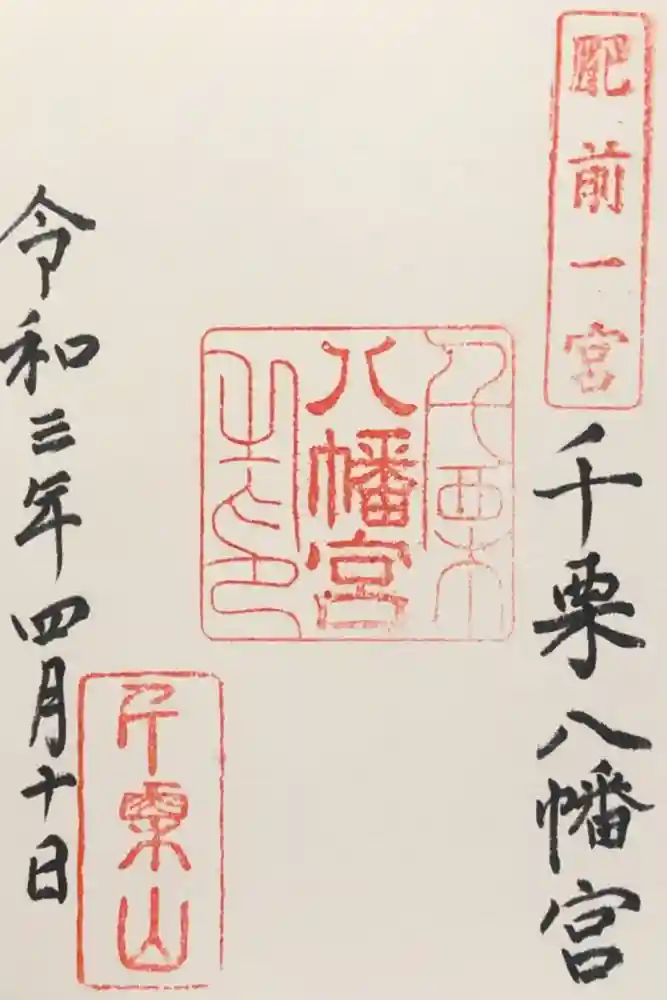 肥前一宮
千栗八幡宮
千栗
八幡宮
之印
令和三年四月十日
千栗山